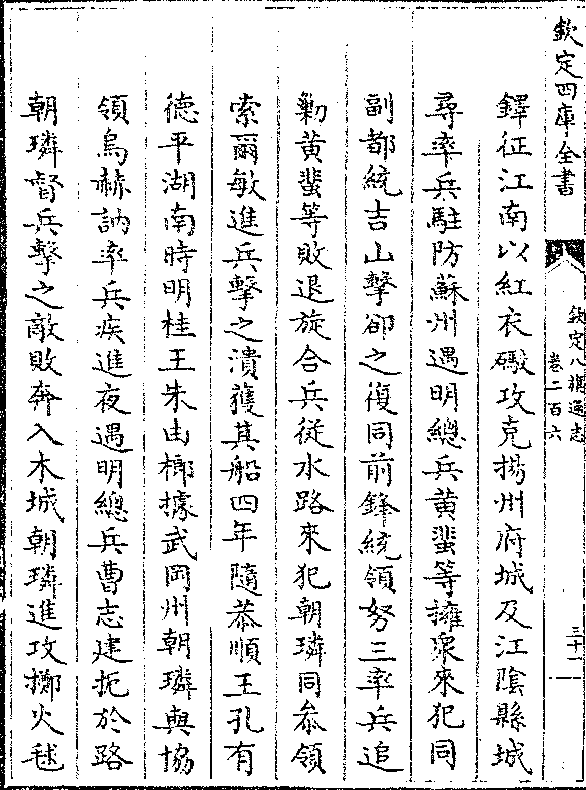 欽定四庫全書
欽定八旗通志
卷二百六
三十二
鐸征江南以紅衣礮攻克揚州府城及江陰縣城
尋率兵駐防蘇州遇明總兵黄蜚等擁衆來犯同
副都統吉山擊卻之復同前鋒統領努三率兵追
勦黄蜚等敗退旋合兵從水路來犯朝璘同叅領
索爾敏進兵擊之潰獲其船四年隨恭順王孔有
德平湖南時明桂王朱由榔據武岡州朝璘與協
領烏赫訥率兵疾進夜遇明總兵曹志建扼於路
朝璘督兵擊之敵敗奔入木城朝璘進攻擲火毬